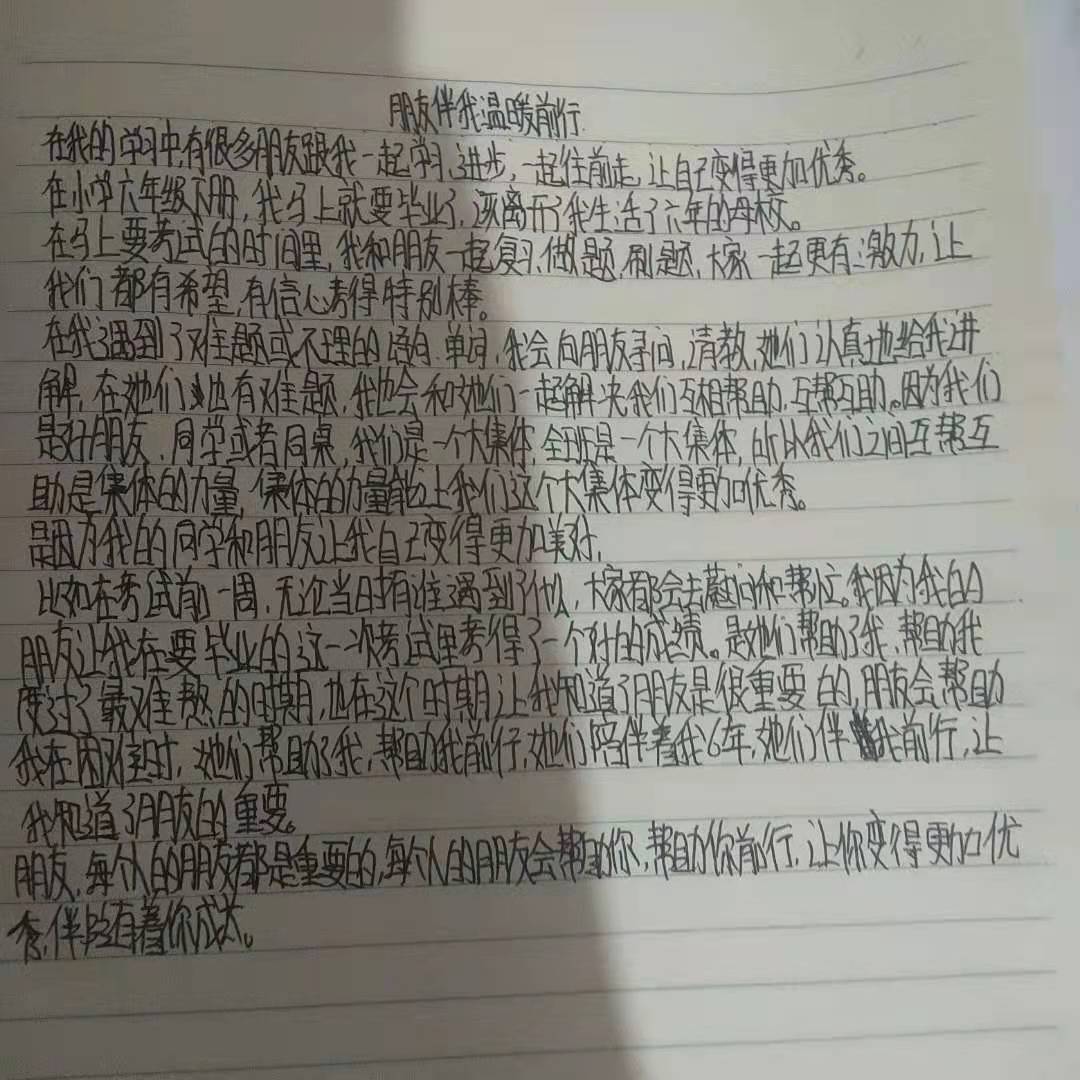 朋友伴我温暖前行
在我的学习中,有很多朋友跟我一起学习、进步,一起往前走,让自己变得更加优秀。
在小学六年级下册,我马上就要毕业了,该离开了我生活了六年的母校。
在马上要考试的时间里,我和朋友一起复习、做题、刷题,大家一起更有激力,让
我们都有希望,有信心考得特别棒。
在我遇到了难题或不理的语自、单词,我会向朋友寻问,请教,她们认真地给我进
解,在她们也有难题,我也会和她们一起解决我们互相帮助,互帮互助。因为我们
是好朋友、同学或者同桌,我们是一个大集体,全班是一个大集体,所以我们之间互帮互
助是集体的力量,集体的力量能让我们这个大集体变得更加优秀。
是因为我的同学和朋友让我自己变得更加美好,
比如在考试前一周,无论当时有谁遇到了,大家都会去慰问和帮忙。我因为我的
朋友让我在要毕业的这一次考试里考得了一个好的成绩。是她们帮助了我,帮助我
度过了最难熬的时期,也在这个时期让我知道了朋友是很重要的,朋友会帮助
我在困难时,她们帮助了我,帮助我前行,她们陪伴着我6年,她们伴我前行,让
我知道了朋友的重要。
朋友,每个人的朋友都是重要的,每个人的朋友会帮助你,帮助你前行,让你变得更加优
秀,伴陪有着你成长。